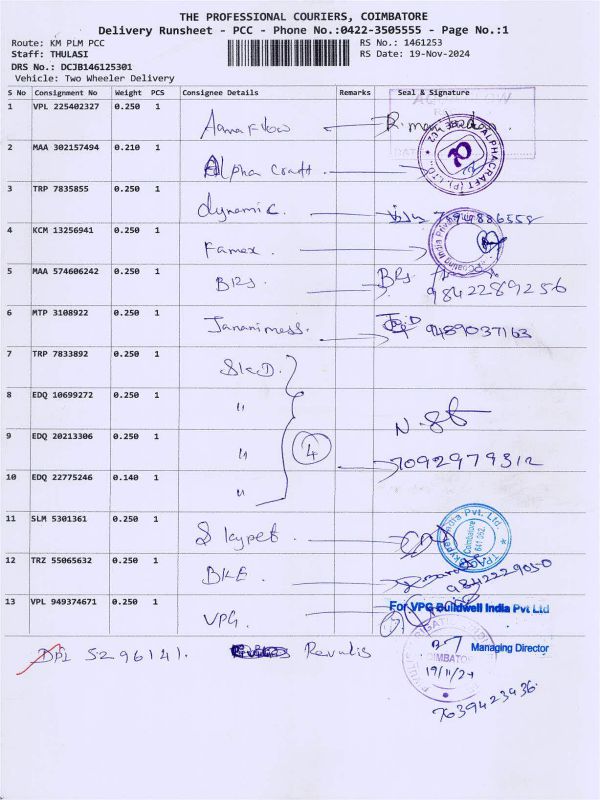 THE PROFESSIONAL COURIERS, COIMBATORE
Delivery Runsheet - PCC - Phone No.:0422-3505555 - Page No.:1
Route: KM PLM PCC
RS No.: 1461253
Staff: THULASI
RS Date: 19-Nov-2024
DRS No.: DCJB146125301
Vehicle: Two Wheeler Delivery
S No Consignment No Weight PCS Consignee Details Remarks Seal & Signature
1 VPL 225402327 0.250 1
2 MAA 302157494 0.210 1 Alpha craft.
ALPHACRAFT (P) LTD.
70
3 TRP 7835855 0.250 1 dynamic.
4 KCM 13256941 0.250 1 Famex.
Coating India Private
5 MAA 574606242 0.250 1 BRs BRs
9842289256
6 MTP 3108922 0.250 1 Jananimess. 9489037163
7 TRP 7833892 0.250 1 SKD.
8 EDQ 10699272 0.250 1 "
9 EDQ 20213306 0.250 1 " 4
7092979312
10 EDQ 22775246 0.140 1 "
11 SLM 5301361 0.250 1 Skypet.
India Pvt. Ltd.
Coimbatore
641 062.
12 TRZ 55065632 0.250 1 BKE.
9842229050
13 VPL 949374671 0.250 1 VPG.
For VPG Buildwell India Pvt Ltd
Managing Director
5296141. Revulis
19/11/24
7639423936.